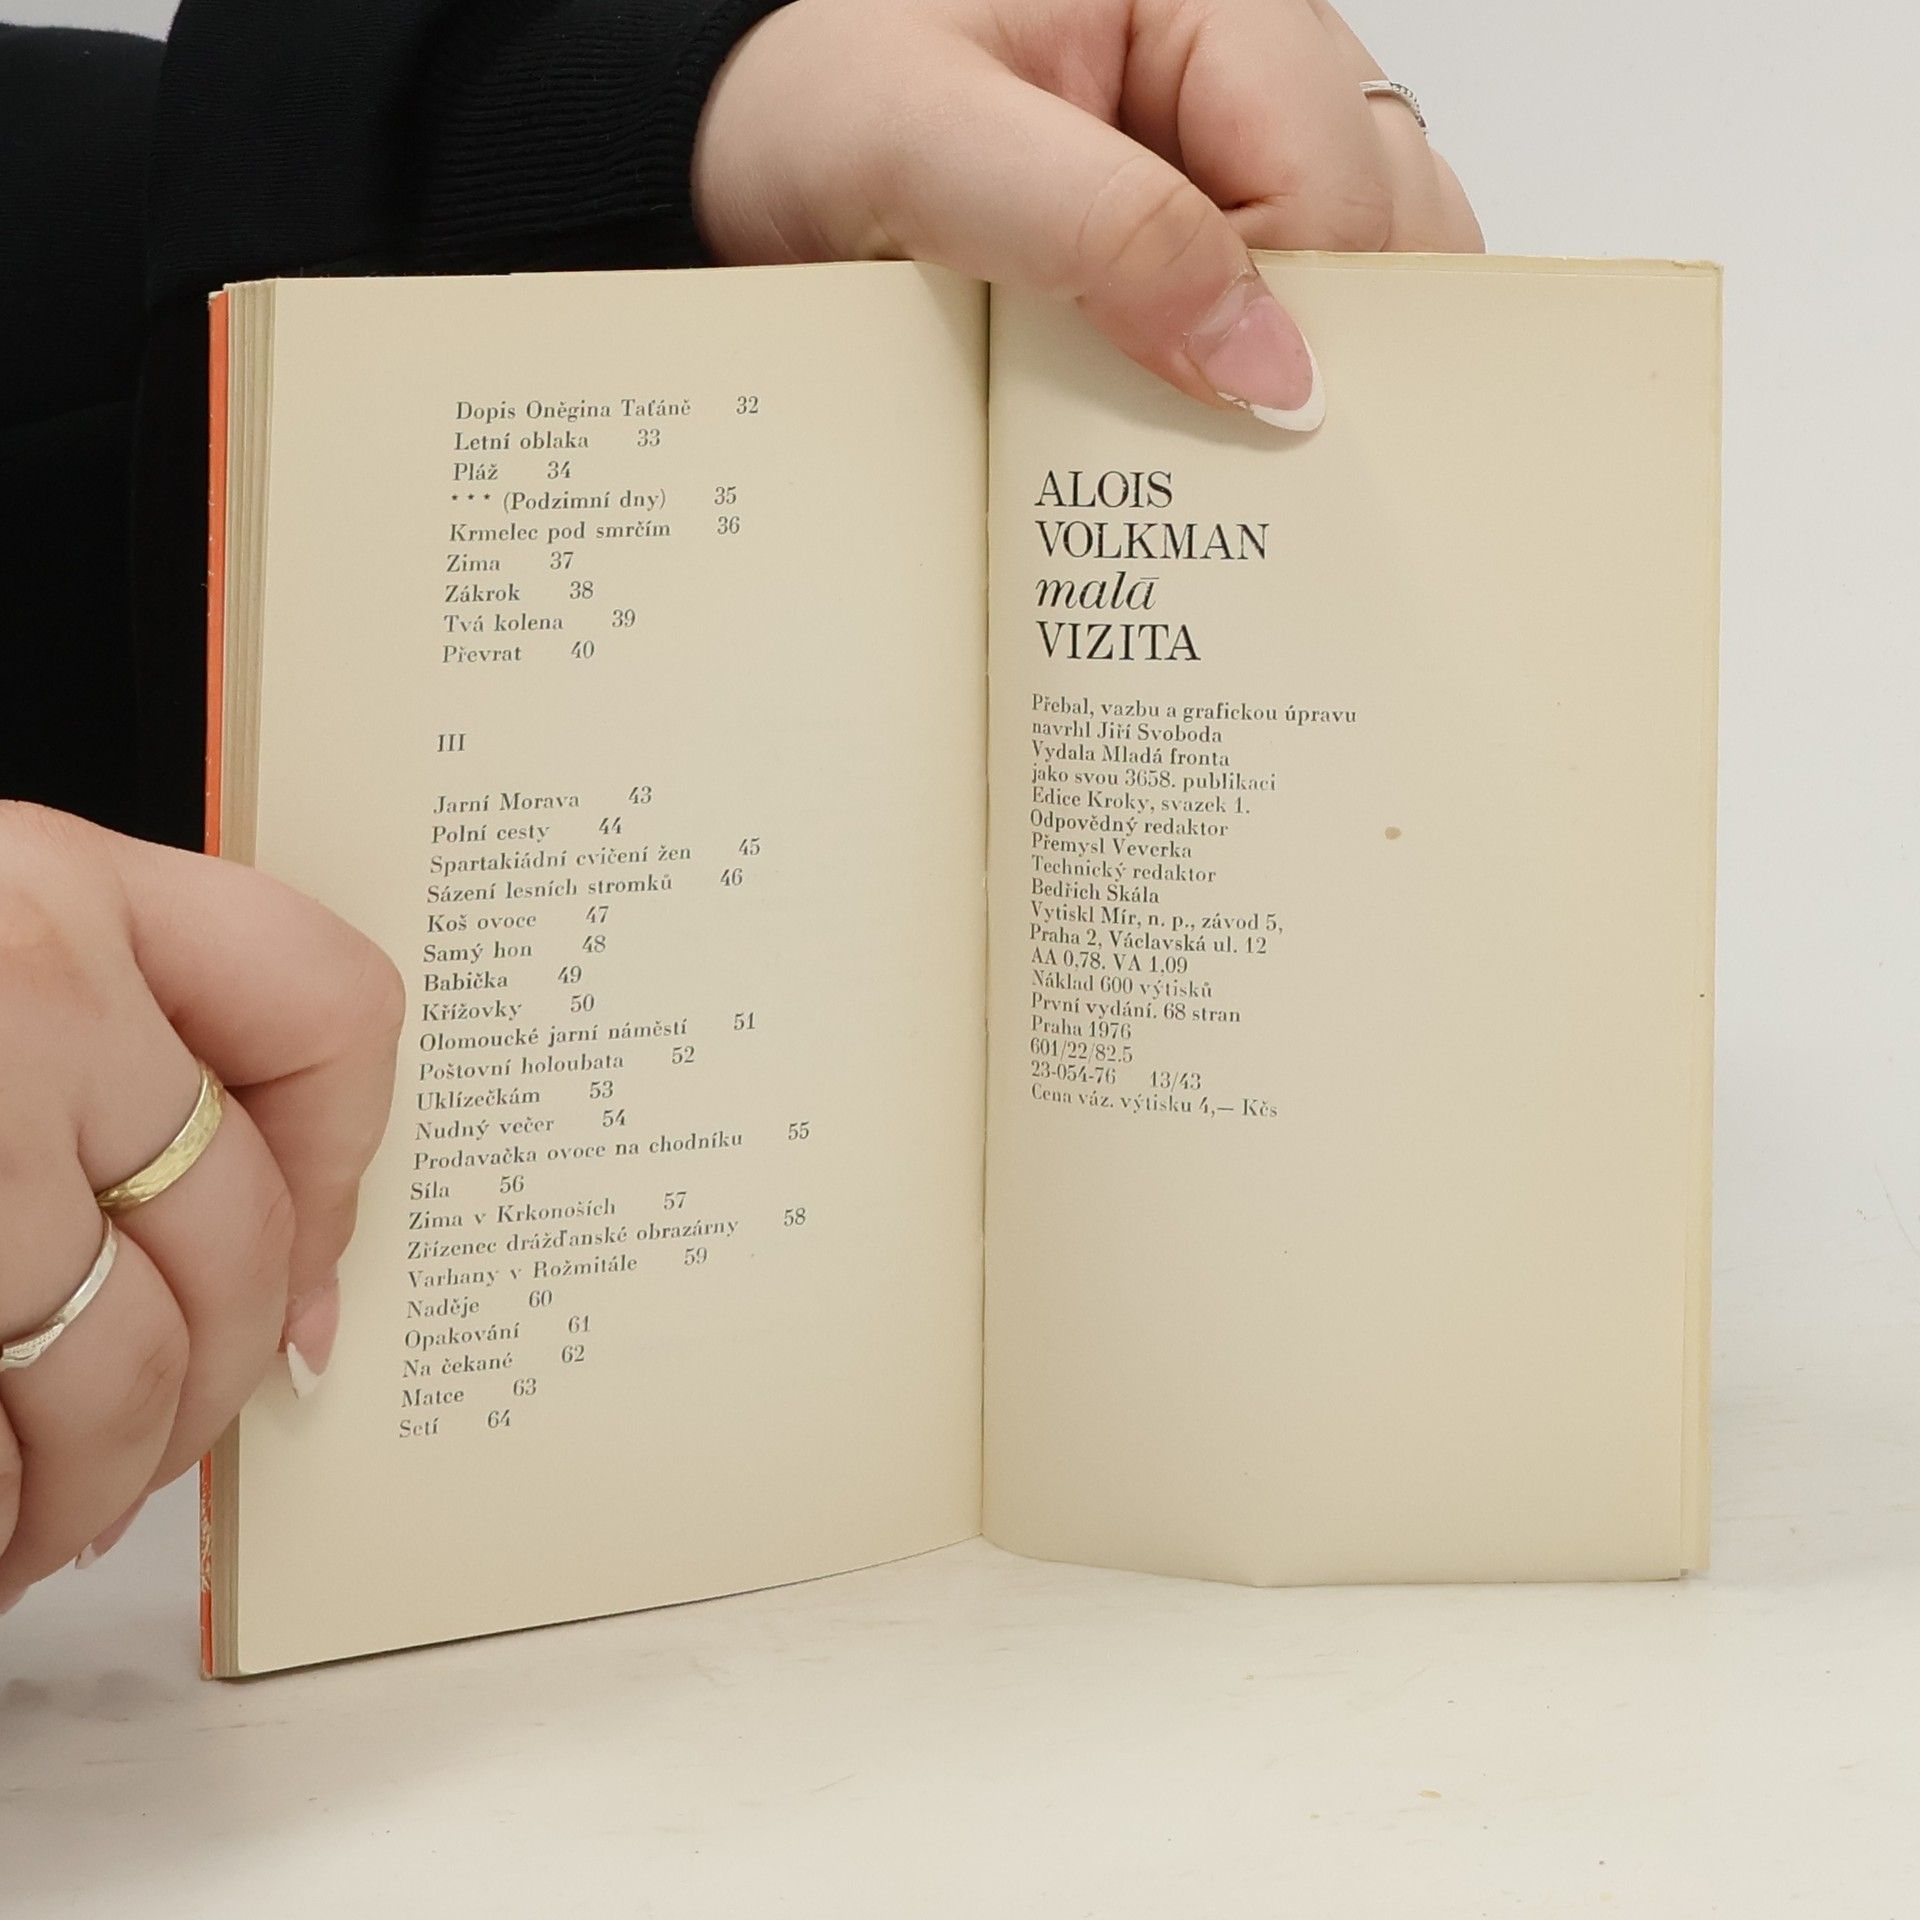 Dopis Oněgina Taťáně 32
Letní oblaka 33
Pláž 34
* * * (Podzimní dny) 35
Krmelec pod smrčím 36
Zima 37
Zákrok 38
Tvá kolena 39
Převrat 40
III
Jarní Morava 43
Polní cesty 44
Spartakiádní cvičení žen 45
Sázení lesních stromků 46
Koš ovoce 47
Samý hon 48
Babička 49
Křížovky 50
Olomoucké jarní náměstí 51
Poštovní holoubata 52
Uklízečkám 53
Nudný večer 54
Prodavačka ovoce na chodníku 55
Síla 56
Zima v Krkonoších 57
Zřízenec drážďanské obrazárny 58
Varhany v Rožmitále 59
Naděje 60
Opakování 61
Na čekané 62
Matce 63
Setí 64
ALOIS
VOLKMAN
malá
VIZITA
Přebal, vazbu a grafickou úpravu
navrhl Jiří Svoboda
Vydala Mladá fronta
jako svou 3658. publikaci
Edice Kroky, svazek 1.
Odpovědný redaktor
Přemysl Veverka
Technický redaktor
Bedřich Skála
Vytiskl Mír, n. p., závod 5,
Praha 2, Václavská ul. 12
AA 0,78. VA 1,09
Náklad 600 výtisků
První vydání. 68 stran
Praha 1976
601/22/82.5
23-054-76 13/43
Cena váz. výtisku 4,— Kčs